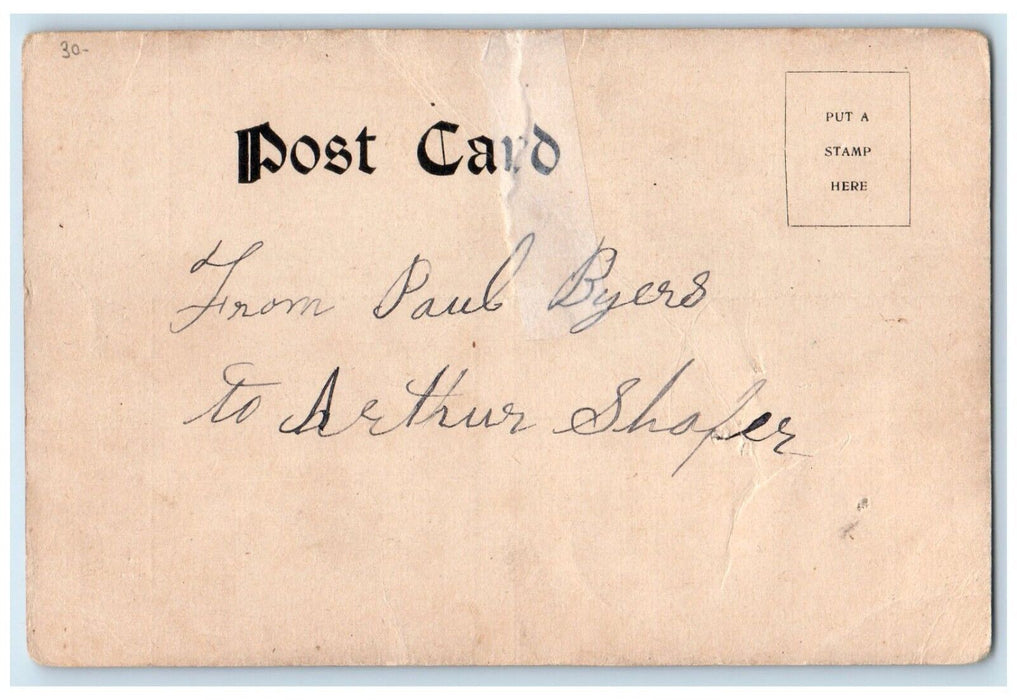 30-
Post Card
PUT A
STAMP
HERE
From Paul Byers
to Arthur Shafer